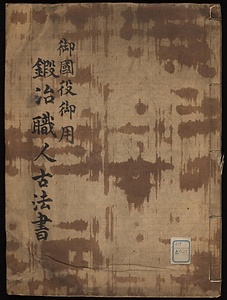 御國役御用
鍛冶職人古法書